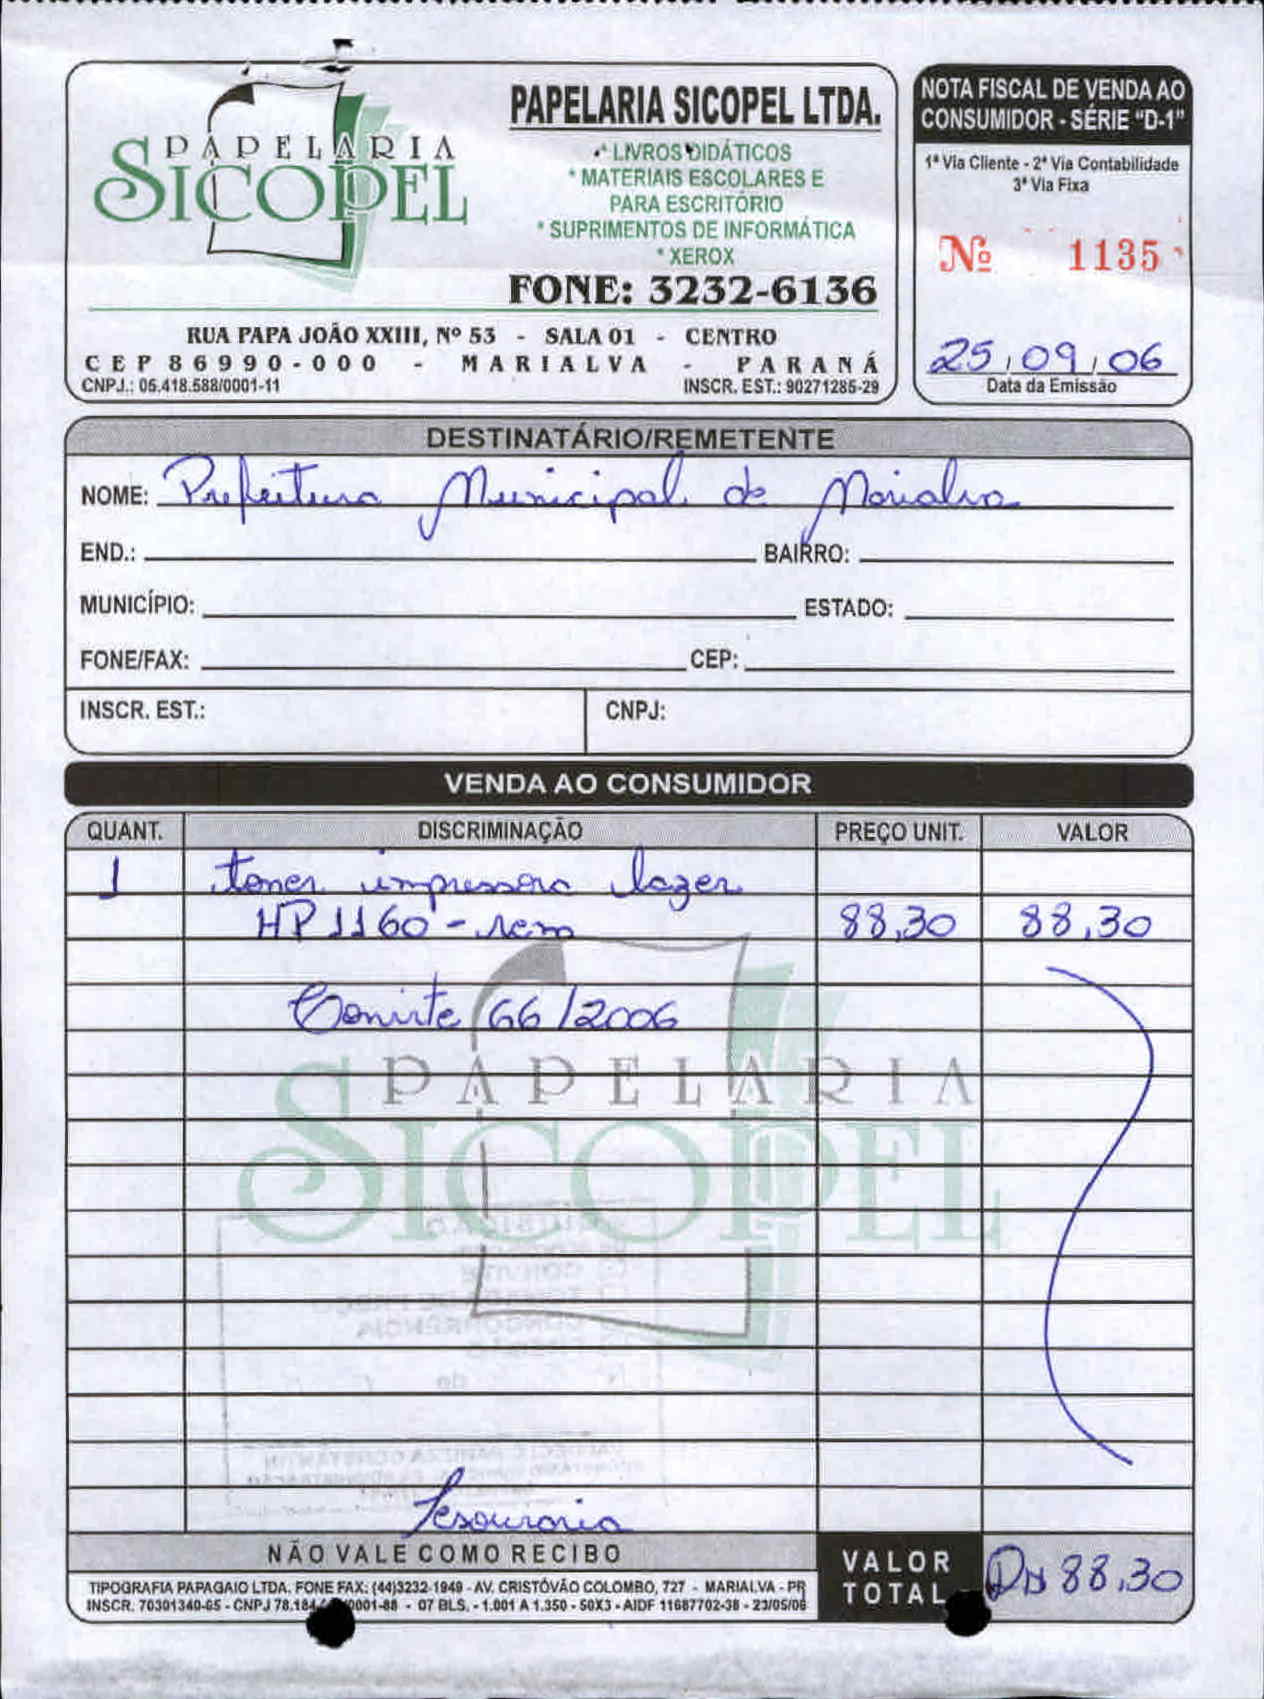 PAPELARIA
SICOPEL
PAPELARIA SICOPEL LTDA.
* LIVROS DIDÁTICOS
* MATERIAIS ESCOLARES E
PARA ESCRITÓRIO
* SUPRIMENTOS DE INFORMÁTICA
* XEROX
FONE: 3232-6136
RUA PAPA JOÃO XXIII, Nº 53 - SALA 01 - CENTRO
CEP 86990-000 - MARIALVA - PARANÁ
CNPJ.: 05.418.588/0001-11 INSCR. EST.: 90271285-29
NOTA FISCAL DE VENDA AO
CONSUMIDOR - SÉRIE "D-1"
1ª Via Cliente - 2ª Via Contabilidade
3ª Via Fixa
Nº 1135
25/09/06
Data da Emissão
DESTINATÁRIO/REMETENTE
NOME: Prefeitura Municipal de Marialva
END.: BAIRRO:
MUNICÍPIO: ESTADO:
FONE/FAX: CEP:
INSCR. EST.: CNPJ:
VENDA AO CONSUMIDOR
QUANT. DISCRIMINAÇÃO PREÇO UNIT. VALOR
1 toner impressora lazer
HP 1160 - rem 88,30 88,30
Convite 66/2006
PAPELARIA
SICOPEL
Tesouraria
NÃO VALE COMO RECIBO
VALOR
TOTAL
R$ 88,30
TIPOGRAFIA PAPAGAIO LTDA. FONE FAX: (44)3232-1949 - AV. CRISTÓVÃO COLOMBO, 727 - MARIALVA - PR
INSCR. 70301340-65 - CNPJ 78.184. /0001-88 - 07 BLS. - 1.001 A 1.350 - 50X3 - AIDF 11687702-38 - 23/05/06